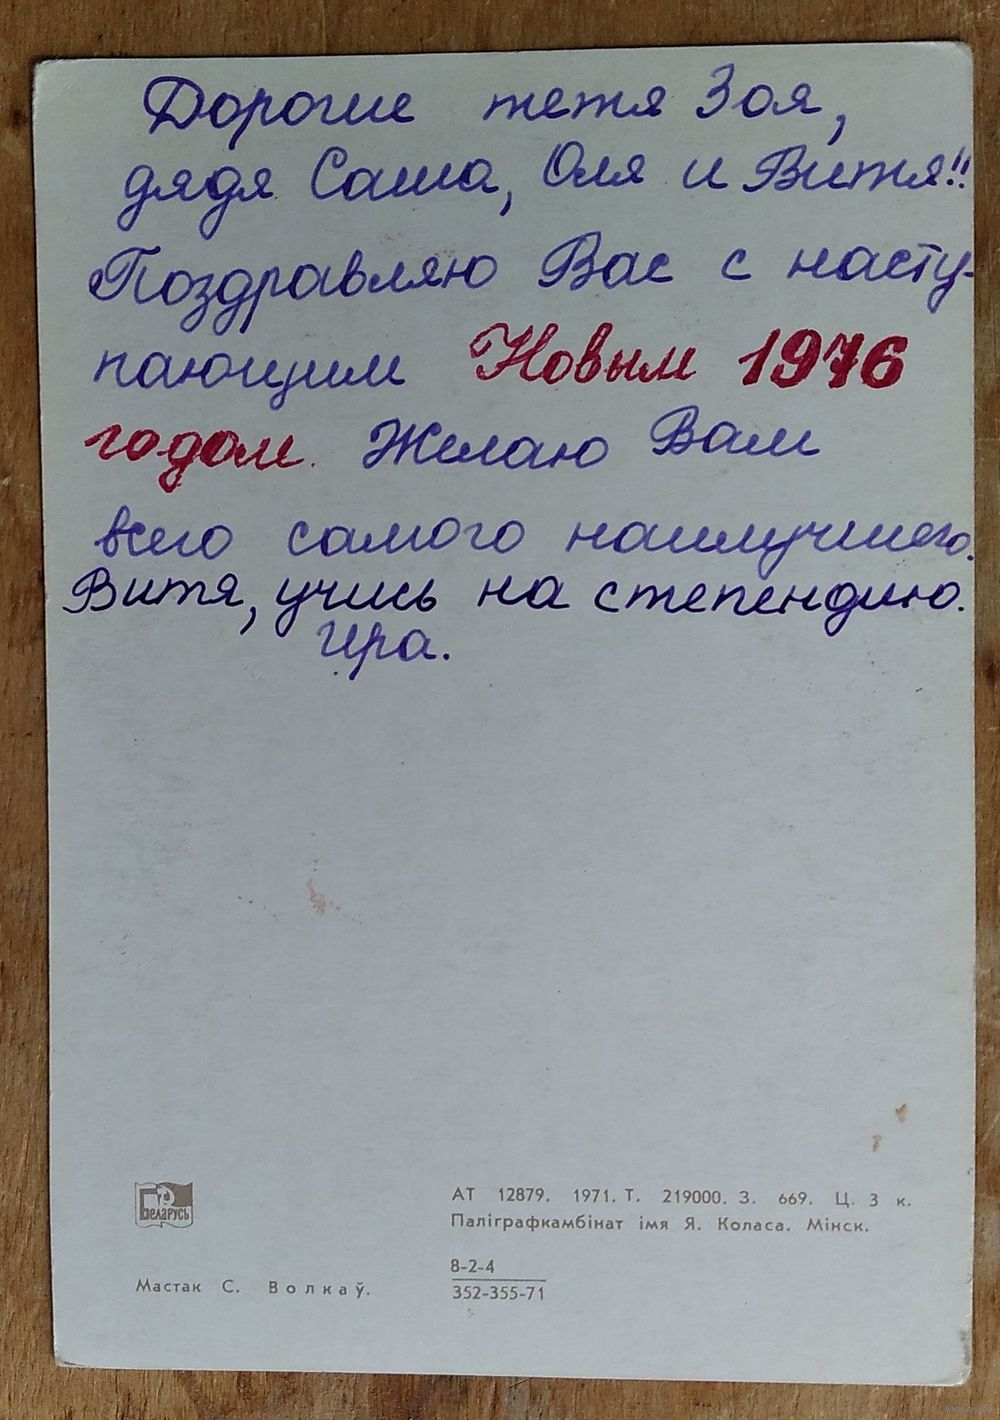 Дорогие тетя Зоя,
дядя Саша, Оля и Витя!!
Поздравляю Вас с насту-
пающим Новым 1976
годом. Желаю Вам
всего самого наилучшего.
Витя, учись на степендию.
Ира.
Беларусь
АТ 12879. 1971. Т. 219000. З. 669. Ц. 3 к.
Паліграфкамбінат імя Я. Коласа. Мінск.
8-2-4
Мастак С. Волкаў.
352-355-71